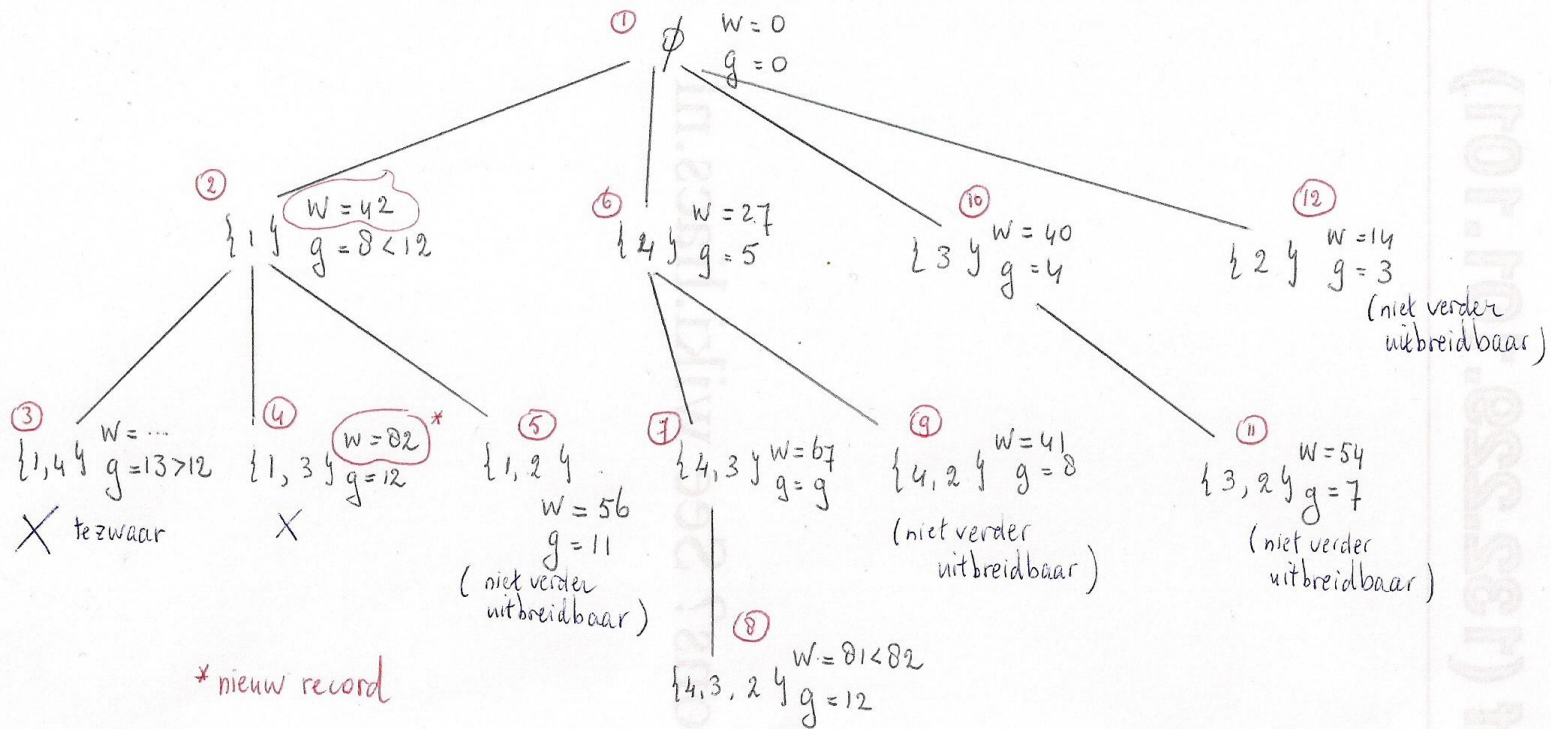 ① ∅ w = 0
g = 0
② {1} w = 42
g = 8 < 12
⑥ {4} w = 27
g = 5
⑩ {3} w = 40
g = 4
⑫ {2} w = 14
g = 3
(niet verder
uitbreidbaar)
③ {1,4} w = ...
g = 13 > 12
X te zwaar
④ {1, 3} w = 82 *
g = 12
X
⑤ {1, 2}
w = 56
g = 11
(niet verder
uitbreidbaar)
⑦ {4,3} w = 67
g = 9
⑨ {4, 2} w = 41
g = 8
(niet verder
uitbreidbaar)
⑪ {3, 2} w = 54
g = 7
(niet verder
uitbreidbaar)
⑧ {4,3, 2} w = 81 < 82
g = 12
* nieuw record